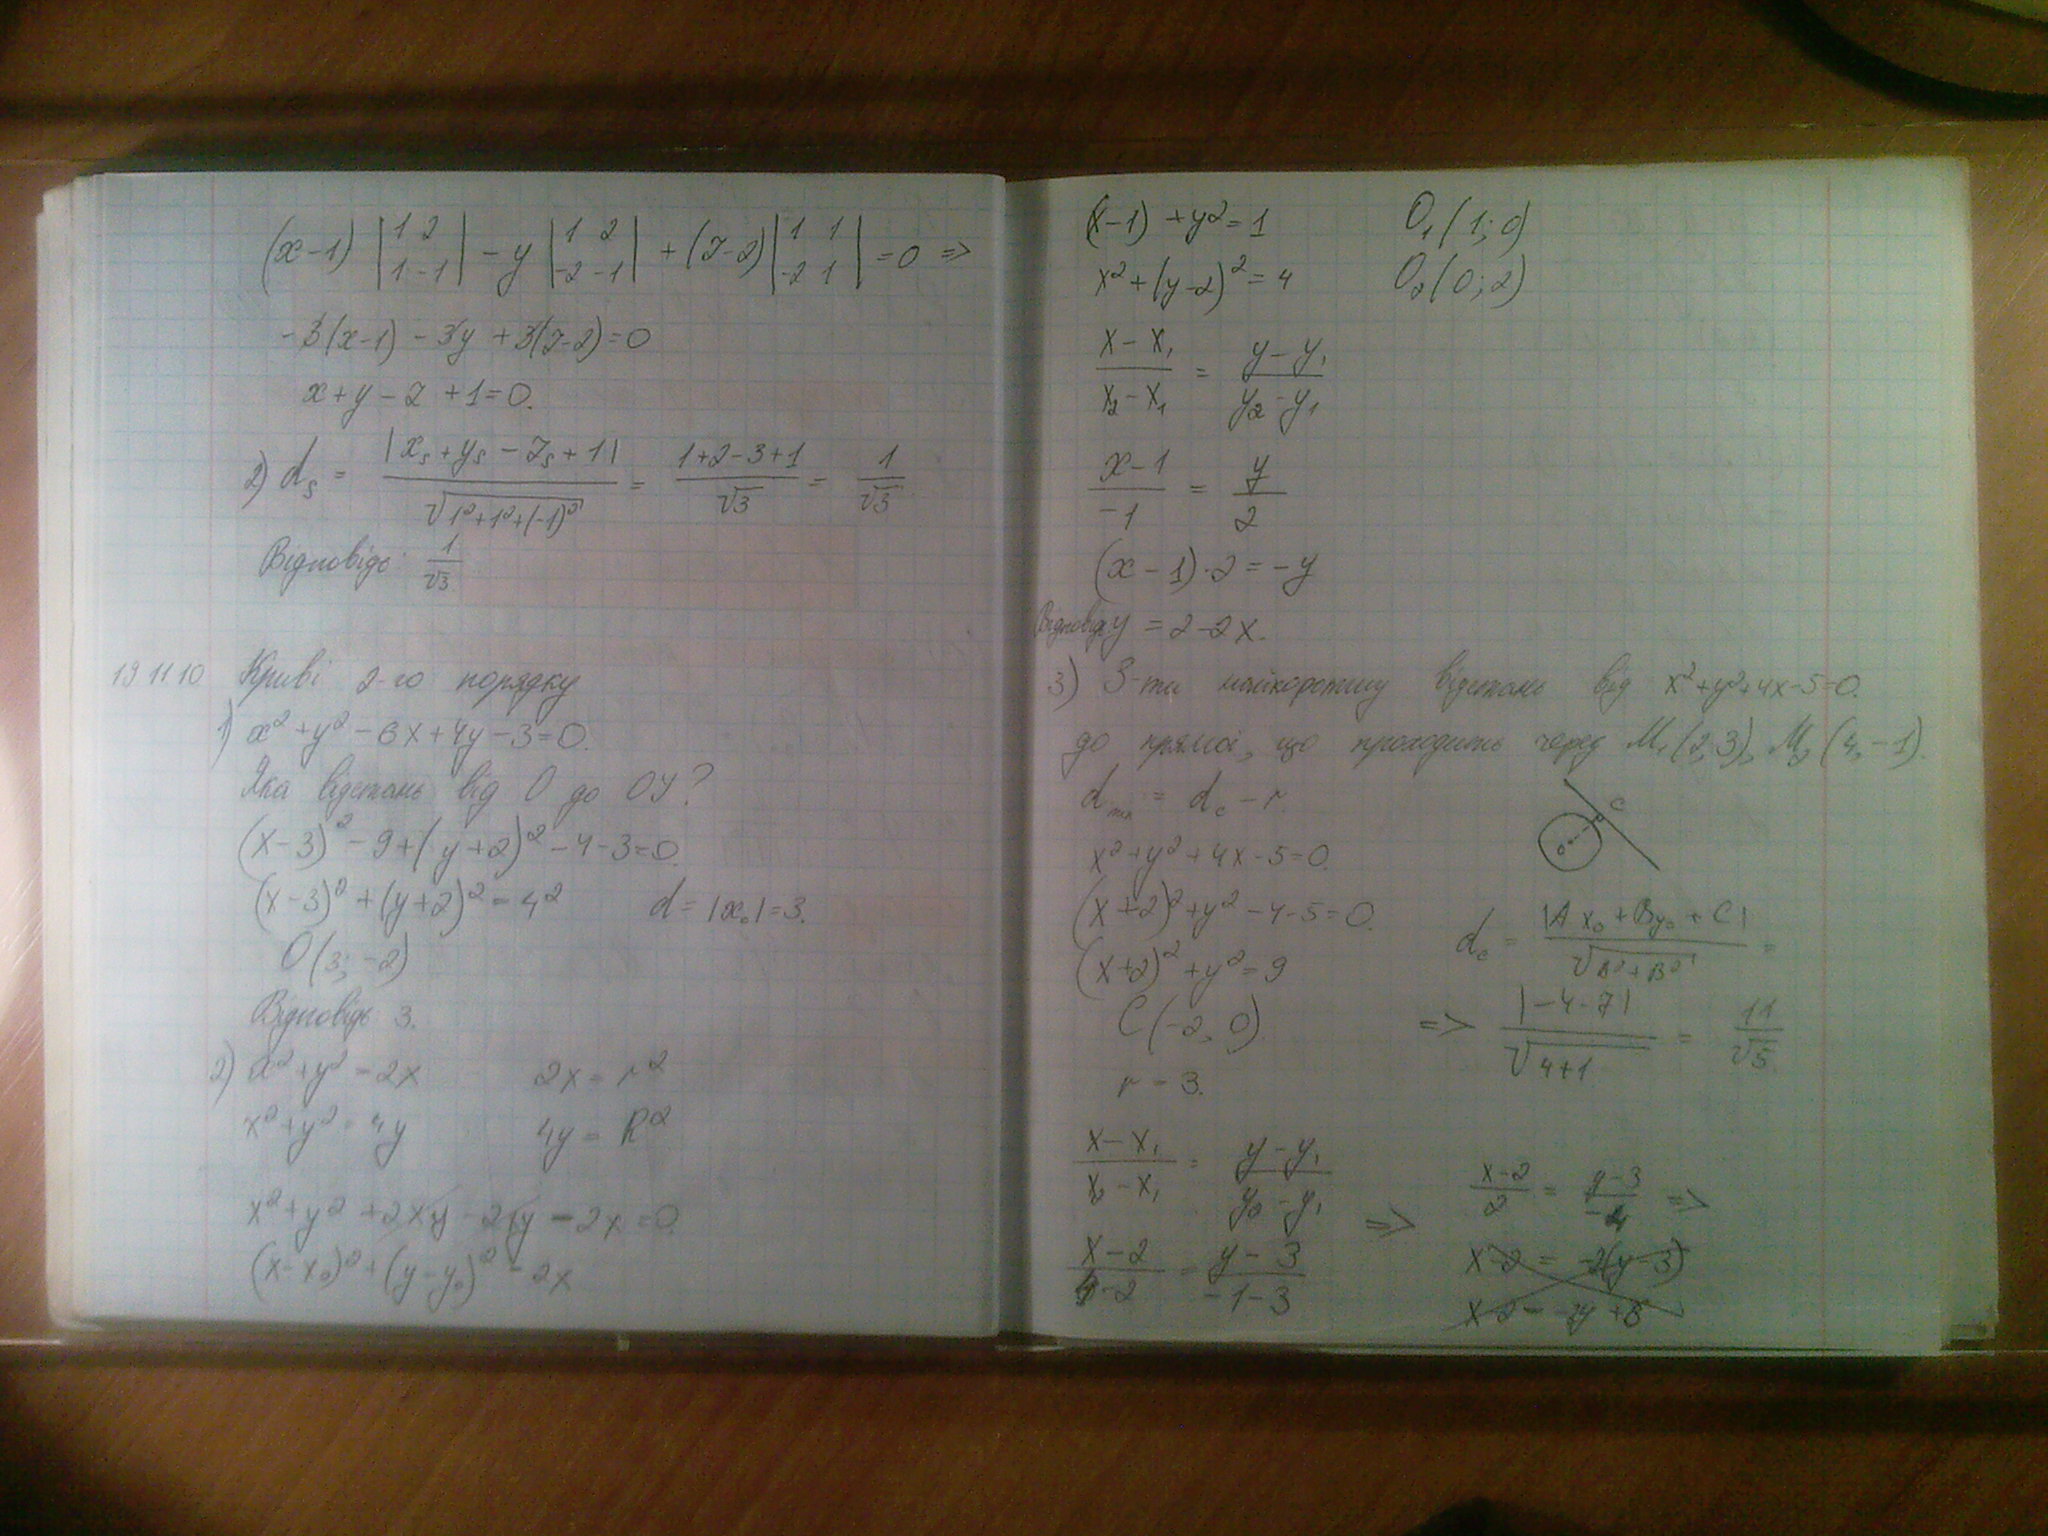 (x-1) |1 2; 1 -1| - y |1 2; -2 -1| + (z-2) |1 1; -2 1| = 0 =>
-3(x-1) - 3y + 3(z-2) = 0
x + y - z + 1 = 0.
2) d_s = |x_s + y_s - z_s + 1| / √(1²+1²+(-1)²) = (1+2-3+1)/√3 = 1/√3
Відповідь: 1/√3
19 11 10 Криві 2-го порядку
1) x² + y² - 6x + 4y - 3 = 0.
Яка відстань від O до OY?
(x-3)² - 9 + (y+2)² - 4 - 3 = 0
(x-3)² + (y+2)² = 4² d = |x₀| = 3.
O(3; -2)
Відповідь 3.
2) x² + y² = 2x 2x = r²
x² + y² = 4y 4y = R²
x² + y² + 2xy - 2xy - 2x = 0
(x-x₀)² + (y-y₀)² = 2x
(x-1) + y² = 1 O₁(1; 0)
x² + (y-2)² = 4 O₂(0; 2)
(x - x₁)/(x₂ - x₁) = (y - y₁)/(y₂ - y₁)
(x-1)/(-1) = y/2
(x-1)·2 = -y
Відповідь: y = 2-2x.
3) З-ти найкоротшу відстань від x²+y²+4x-5=0.
до прямої, що проходить через M₁(2,3), M₂(4,-1).
d = d_c - r
C
O
x² + y² + 4x - 5 = 0.
(x+2)² + y² - 4 - 5 = 0. d_c = |Ax₀ + By₀ + C| / √(A²+B²) =
(x+2)² + y² = 9
C(-2, 0) => |-4-7| / √(4+1) = 11/√5
r = 3.
(x - x₁)/(x₂ - x₁) = (y - y₁)/(y₂ - y₁) => (x-2)/2 = (y-3)/-4 =>
(x-2)/(4-2) = (y-3)/(-1-3) x-2 = -2(y-3)
x-2 = -2y+6